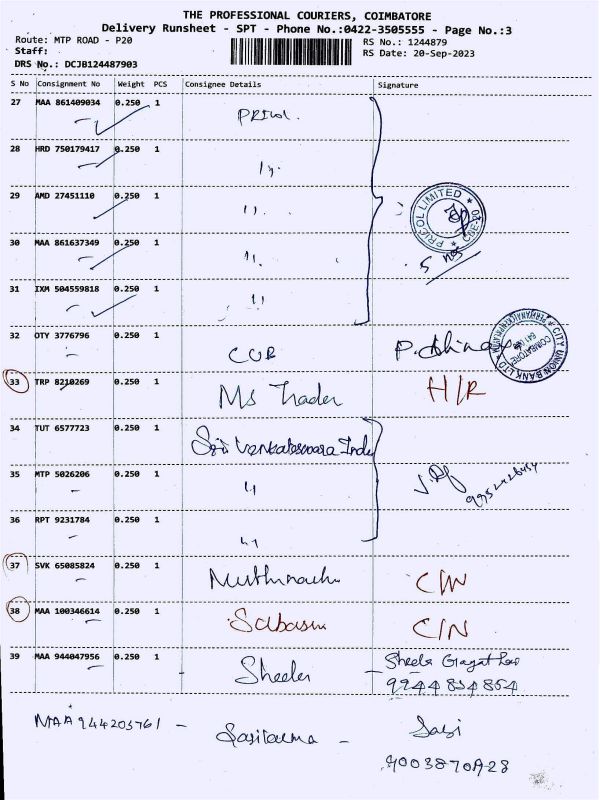 THE PROFESSIONAL COURIERS, COIMBATORE
Delivery Runsheet - SPT - Phone No.:0422-3505555 - Page No.:3
Route: MTP ROAD - P20
RS No.: 1244879
Staff:
RS Date: 20-Sep-2023
DRS No.: DCJB124487903
S No Consignment No Weight PCS Consignee Details Signature
27 MAA 861409034 0.250 1 PRICOL.
28 HRD 750179417 0.250 1
29 AMD 27451110 0.250 1 ''.
PRICOL LIMITED ★ CBE-20 ★
30 MAA 861637349 0.250 1 ''.
5 nos
31 IXM 504559818 0.250 1 ''
32 OTY 3776796 0.250 1 CUB
CITY UNION BANK LTD COIMBATORE
33 TRP 8210269 0.250 1 Ms Trader H/R
34 TUT 6577723 0.250 1 Sri Venkateswara Indu
35 MTP 5026206 0.250 1 ''
36 RPT 9231784 0.250 1 ''
37 SVK 65085824 0.250 1 C/N
38 MAA 100346614 0.250 1 C/N
39 MAA 944047956 0.250 1 Sheeler Sheela
9244854864
MAA 944203761 - - Sasi